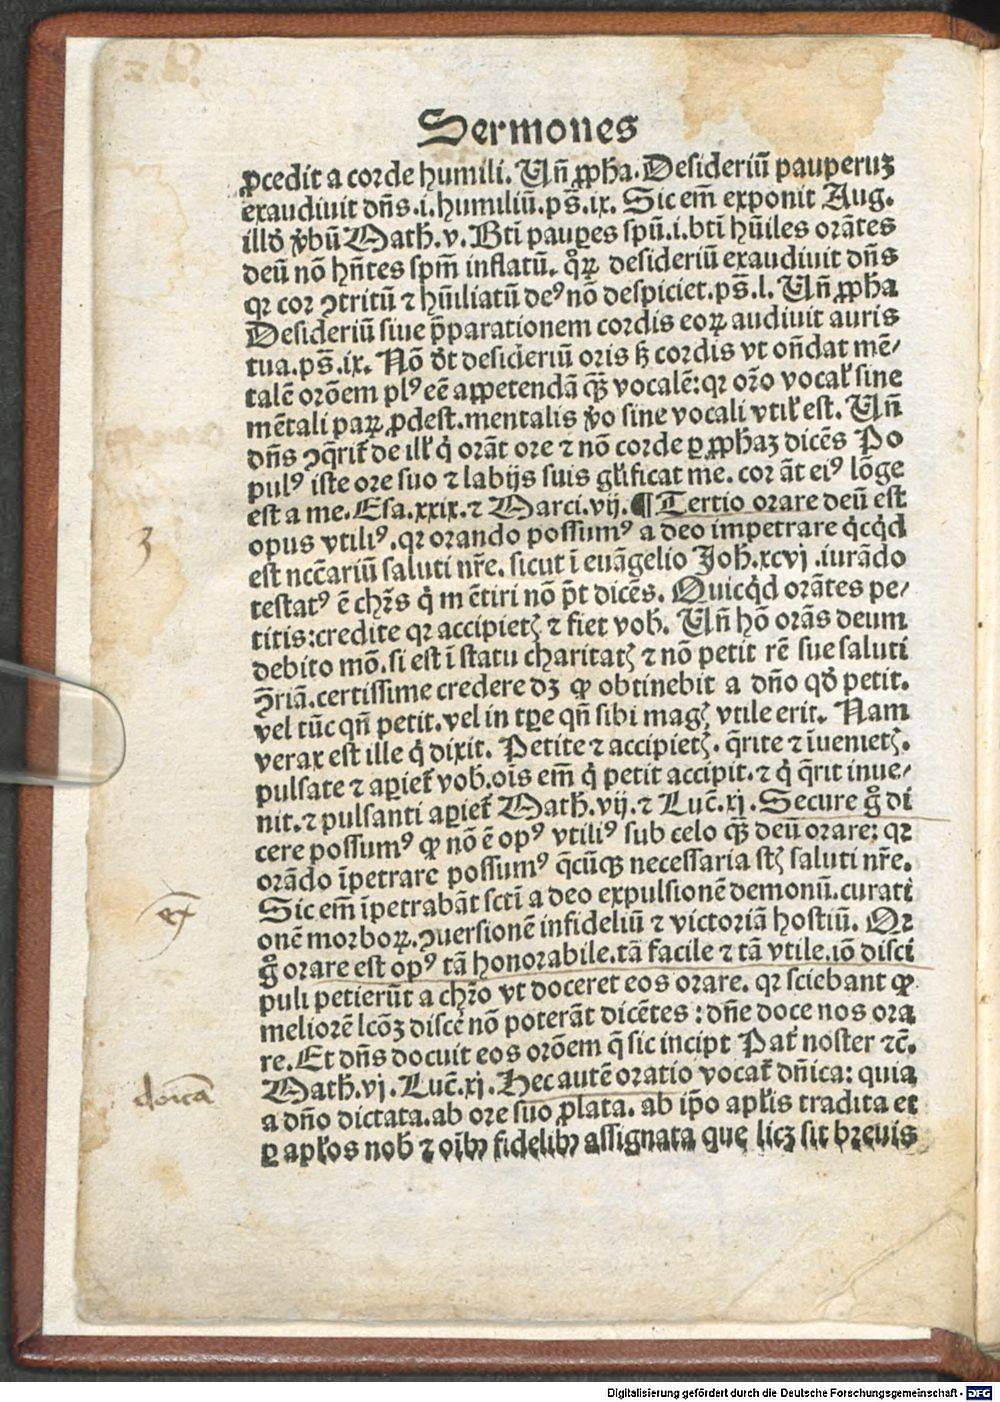 Sermones
ꝓcedit a corde humili. Vñ ꝓpha. Desideriū pauperuꝫ
exaudiuit dñs .i. humiliū. ps̄. ix. Sic em̄ exponit Aug.
illd̓ v̓bū Math̄. v. Bt̄i pauꝑes spū .i. bt̄i hūiles orātes
deū nō hñtes spm̄ inflatū. qr̄ꝝ desideriū exaudiuit dñs
qꝛ cor ꝯtritū ⁊ hūiliatū deꝰ nō despiciet. ps̄. l. Vñ ꝓpha
Desideriū siue p̄parationem cordis eoꝝ audiuit auris
tua. ps̄. ix. Nō d̓t desideriū oris sꝫ cordis vt oñdat mē/
talē orōem plꝰ eē appetendā qȝ̄ vocalē: qꝛ or̄o vocał sine
mētali paꝝ ꝓdest. mentalis v̓o sine vocali vtił est. Vñ
dñs ꝯq̄rit̄ de ill̓ q̇ orāt ore ⁊ nō corde ꝑ ꝓphaꝫ dicēs Po
pulꝰ iste ore suo ⁊ labijs suis gl̓ificat me. cor āt eiꝰ lōge
est a me. Esa. xxix. ⁊ Marci. vij. ¶ Tertio orare deū est
opus vtiliꝰ. qꝛ orando possumꝰ a deo impetrare q̇cq̇d
est nccāriū saluti nr̄e. sicut ī euāgelio Joh̄. xcvj .iurādo
testatꝰ ē chr̄s q̇ mētiri nō pt̄ dicēs. Quicq̇d orātes pe/
titis: credite qꝛ accipietꝭ ⁊ fiet vob̄. Vñ hō orās deum
debito mō. si est ī statu charitatꝭ ⁊ nō petit rē sue saluti
ꝯ̄riā. certissime credere dꝫ ꝙ obtinebit a dño qd̓ petit.
vel tūc qñ petit. vel in tꝑe qñ sibi magꝭ vtile erit. Nam
verax est ille q̇ dixit. Petite ⁊ accipietꝭ. q̄rite ⁊ īuenietꝭ.
pulsate ⁊ aꝑiet̄ vob̄. oīs em̄ q̇ petit accipit. ⁊ q̇ q̄rit inue/
nit. ⁊ pulsanti aꝑiet̄ Math̄. vij. ⁊ Luc̄. xj. Secure g̊ di
cere possumꝰ ꝙ nō ē opꝰ vtiliꝰ sub celo qȝ̄ deū orare: qꝛ
orādo īpetrare possumꝰ q̄cūqꝫ necessaria st̄ꝭ saluti nr̄e.
Sic em̄ īpetrabāt sct̄i a deo expulsionē demonū. curati
onē morboꝝ. ꝯuersionē infideliū ⁊ victoriā hostiū. Qꝛ
g̊ orare est opꝰ tā honorabile. tā facile ⁊ tā vtile. iō disci
puli petierūt a chr̄o vt doceret eos orare. qꝛ sciebant ꝙ
meliorē lcōꝫ discē nō poterāt dicētes: dñe doce nos ora
re. Et dñs docuit eos orōem q̄ sic incipt Pat̄ noster ⁊c̄.
Math̄. vj. Luc̄. xj. Hec autē oratio vocat̄ dñica: quia
a dño dictata. ab ore suo ꝓlata. ab ip̄o apl̓is tradita et
ꝑ apl̓os nob̄ ⁊ oībꝰ fidelibꝰ assignata que licꝫ sit breuis
3
ex̄
doīca
Digitalisierung gefördert durch die Deutsche Forschungsgemeinschaft - DFG